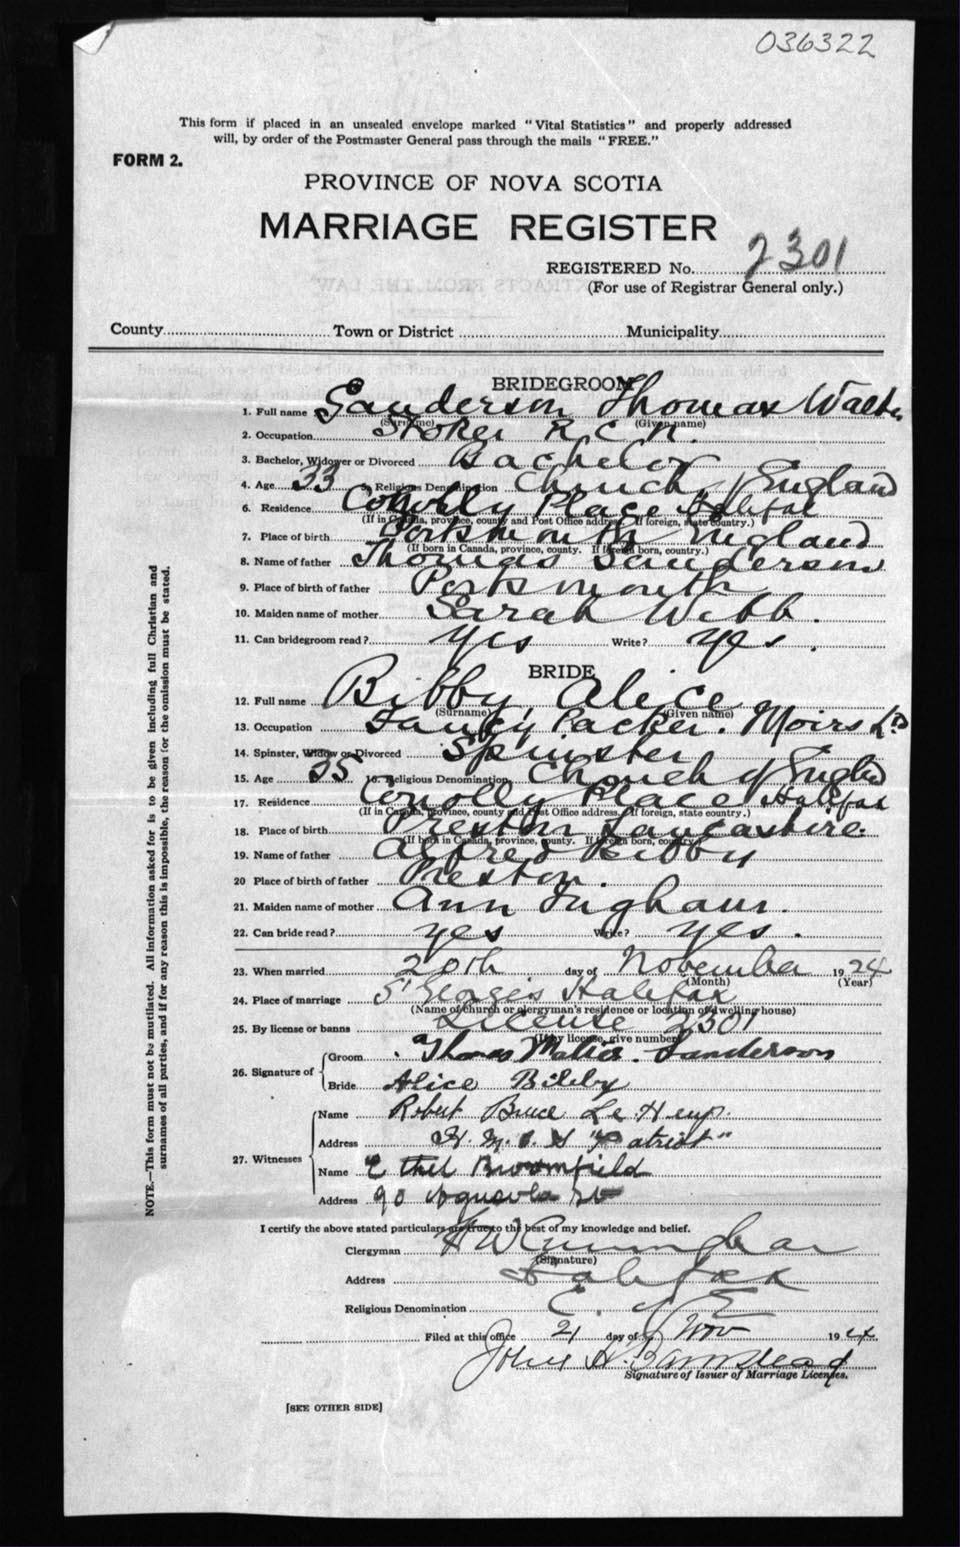 036322
This form if placed in an unsealed envelope marked "Vital Statistics" and properly addressed
will, by order of the Postmaster General pass through the mails "FREE."
FORM 2.
PROVINCE OF NOVA SCOTIA
MARRIAGE REGISTER
REGISTERED No. 2301
(For use of Registrar General only.)
County Town or District Municipality
BRIDEGROOM
1. Full name Sanderson Thomas Walter
(Surname) (Given name)
2. Occupation Stoker R. C. N.
3. Bachelor, Widower or Divorced Bachelor
4. Age 33 5. Religious Denomination Church of England
6. Residence Conolly Place Halifax
(If in Canada, province, county and Post Office address. If foreign, state country.)
7. Place of birth Portsmouth England
(If born in Canada, province, county. If foreign born, country.)
8. Name of father Thomas Sanderson
9. Place of birth of father Portsmouth
10. Maiden name of mother Sarah Webb.
11. Can bridegroom read? yes Write? yes.
BRIDE
12. Full name Bibby, Alice
(Surname) (Given name)
13. Occupation Fancy Packer. Moirs Ld
14. Spinster, Widow or Divorced Spinster
15. Age 35 16. Religious Denomination Church of Engld
17. Residence Conolly Place Halifax
(If in Canada, province, county and Post Office address. If foreign, state country.)
18. Place of birth Preston Lancashire.
(If born in Canada, province, county. If foreign born, country.)
19. Name of father Alfred Bibby
20 Place of birth of father Preston.
21. Maiden name of mother Ann Ingham.
22. Can bride read? yes Write? yes.
23. When married 20th day of November 1924
(Month) (Year)
24. Place of marriage St George's Halifax
(Name of church or clergyman's residence or location of dwelling house)
25. By license or banns License 2301
(If by license, give number)
26. Signature of
Groom Thomas Walter Sanderson
Bride Alice Bibby
27. Witnesses
Name Robert Bruce Le
Address H. M. C. S "Patriot"
Name Ethel Broomfield
Address 90 St
I certify the above stated particulars are true to the best of my knowledge and belief.
Clergyman H W Cunningham
(Signature)
Address Halifax
Religious Denomination C. of E
Filed at this office 21 day of Nov 1924
John H.
Signature of Issuer of Marriage Licenses.
[SEE OTHER SIDE]
NOTE.—This form must not be mutilated. All information asked for is to be given including full Christian and
surnames of all parties, and if for any reason this is impossible, the reason for the omission must be stated.